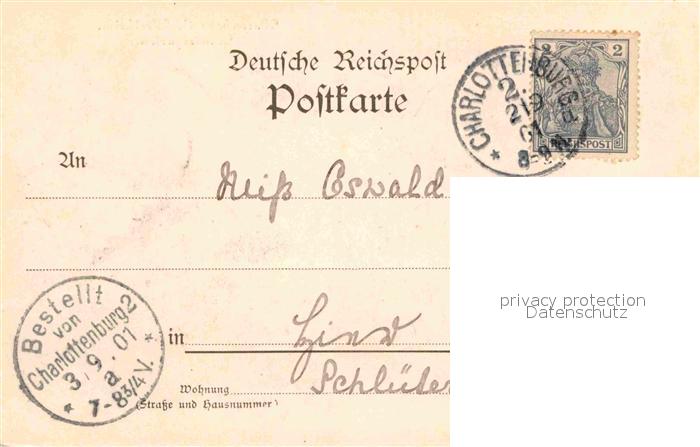 Deutsche Reichspost
Postkarte
CHARLOTTENBURG
2.
2 9
01
8-9 N
2 2
REICHSPOST
An
Oswald
privacy protection
Datenschutz
Bestellt
von
Charlottenburg 2
3.9.01
a
7-8 3/4 V.
in
Hier
Schlüter
Wohnung
(Straße und Hausnummer)